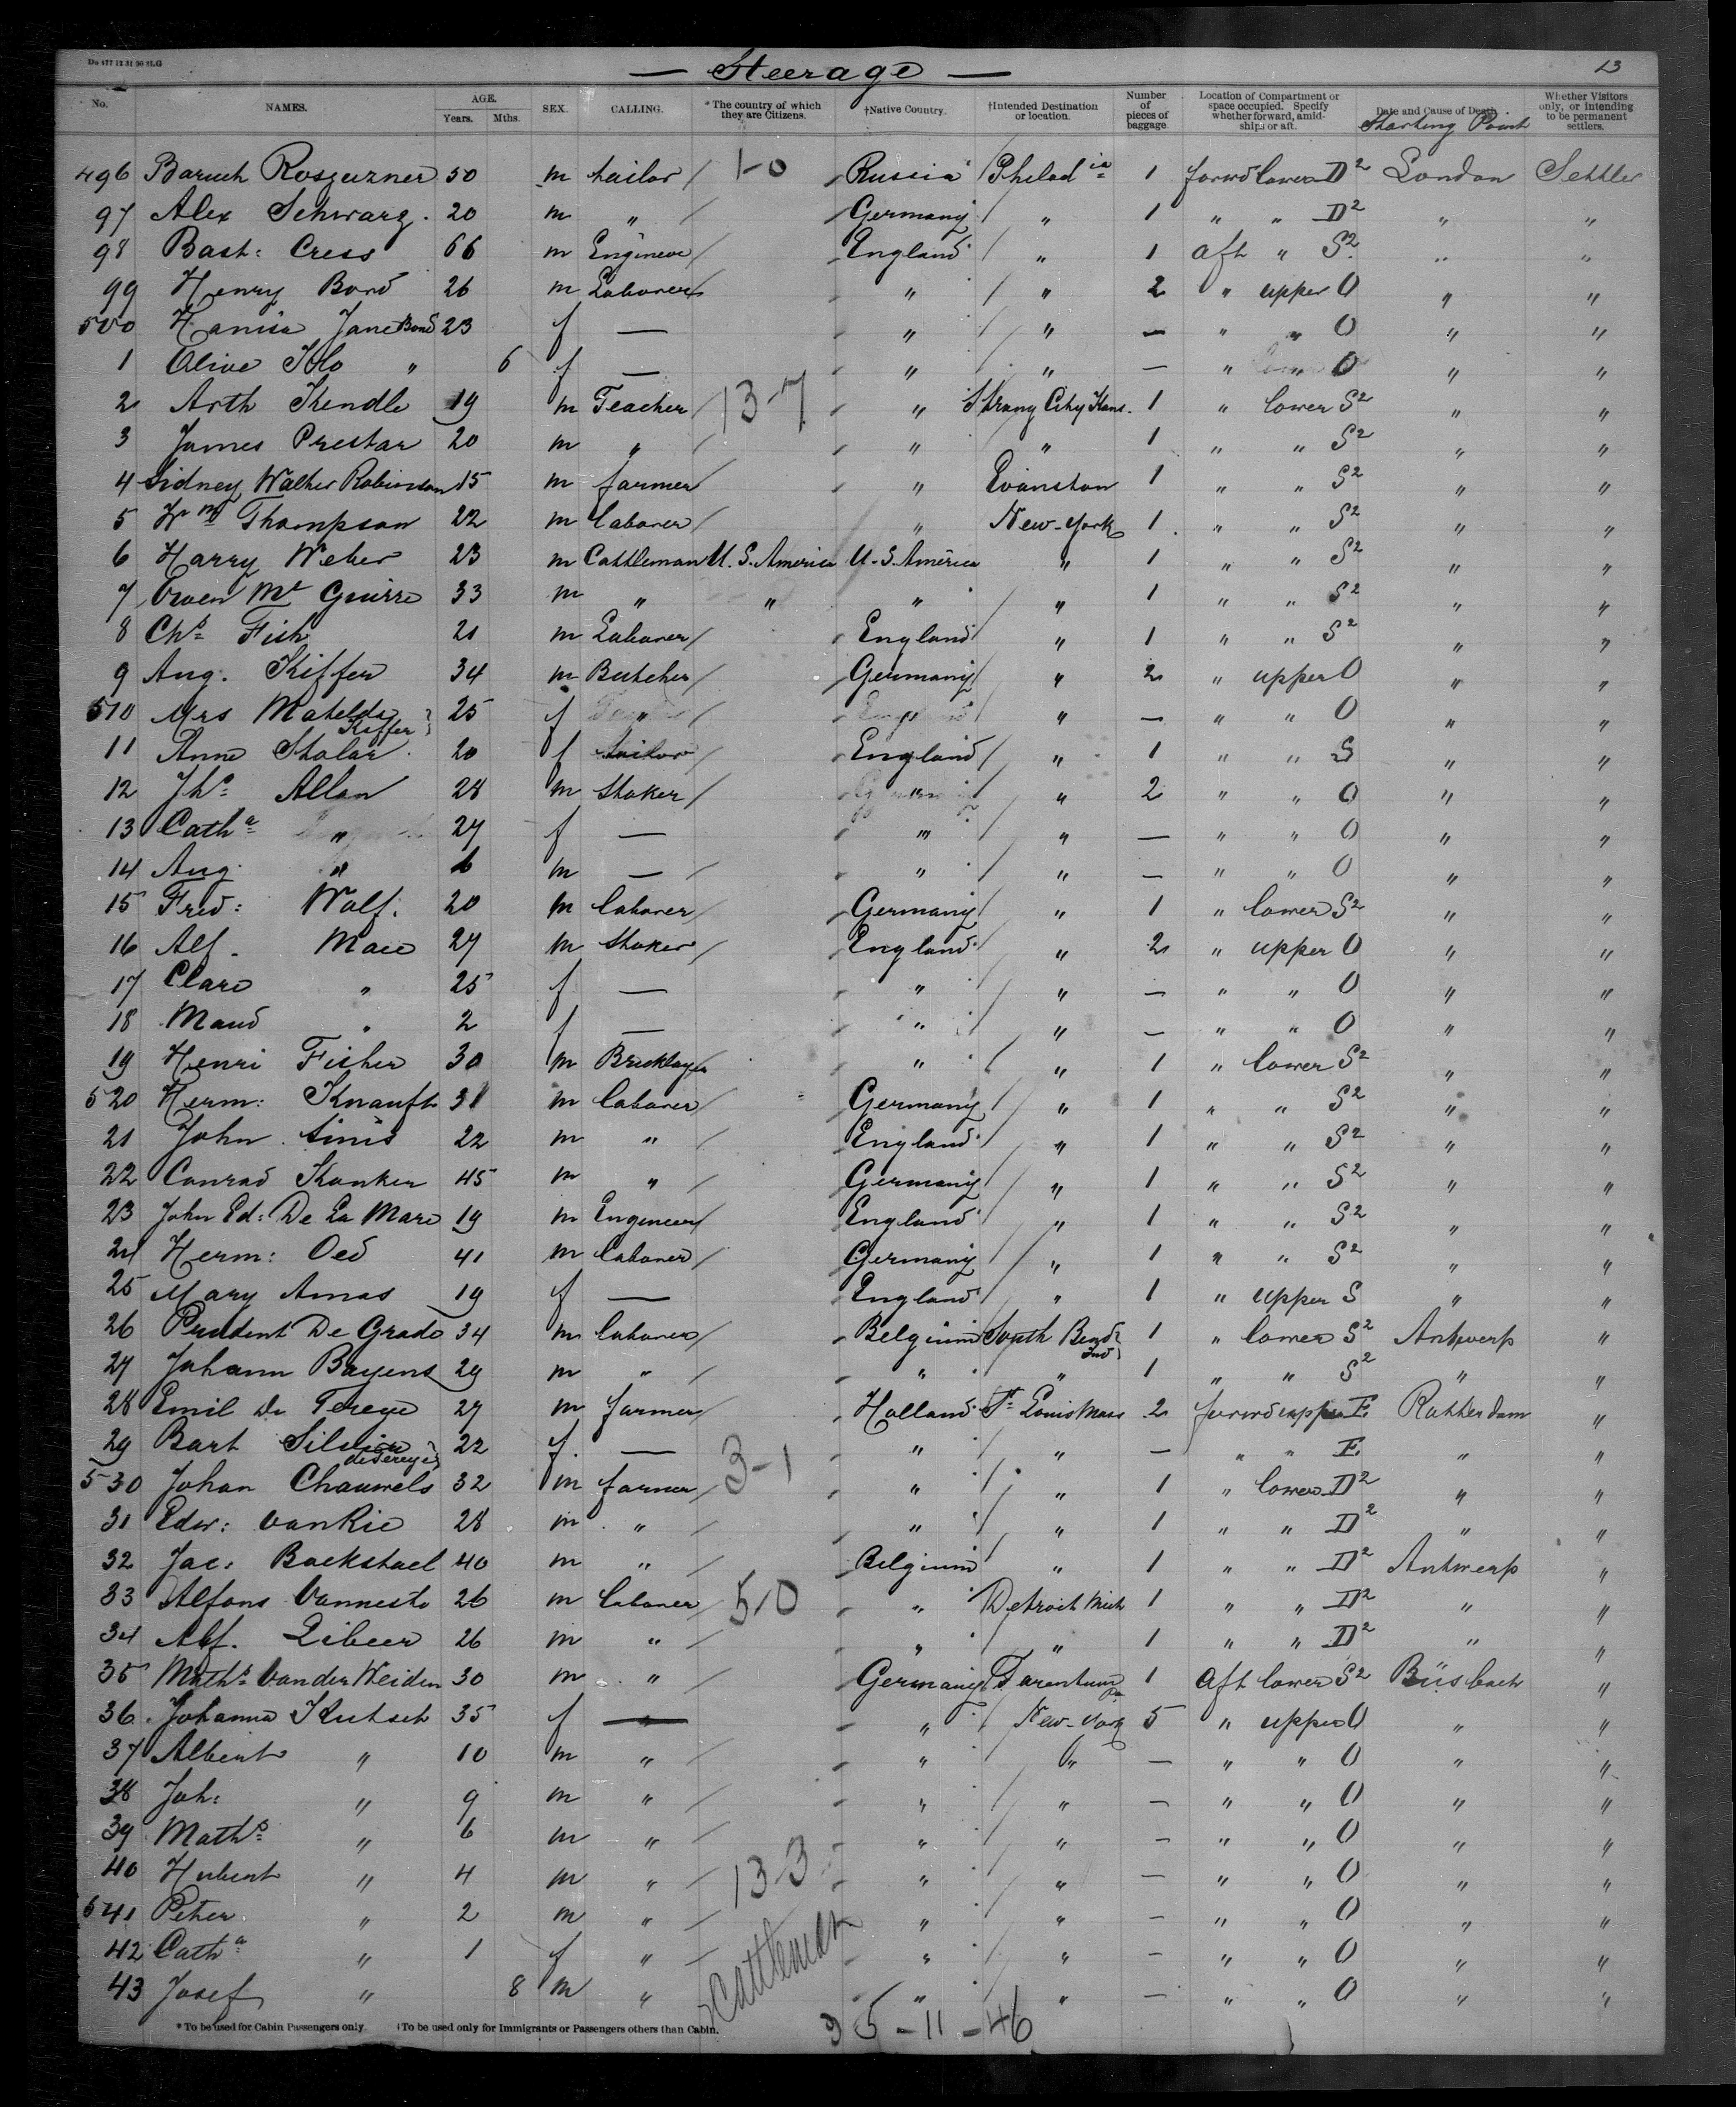 Do 477 12 31 90 H.G
— Steerage —
13
No. NAMES. AGE. Years. Mths. SEX. CALLING. *The country of which they are Citizens. †Native Country. †Intended Destination or location. Number of pieces of baggage. Location of Compartment or space occupied. Specify whether forward, amidships or aft. Date and Cause of Death. Starting Point Whether Visitors only, or intending to be permanent settlers.
496 Baruch 50 m tailor / 1-0 Russia Philad ia 1 forwd lower D2 London Settler
97 Alex Schwarz. 20 m " / Germany / " 1 " " D2 " "
98 Bast: Cress 66 m Engineer / England " 1 aft " S2 " "
99 Henry Bond 26 m Laborer / " / " 2 " upper O " "
500 Jane Bond 23 f — " / " — " " O " "
1 Olive Flo " 6 f — " / " — " " O " "
2 Arth Kendle 19 m Teacher / 13-7 " Strong City Kans. 1 " lower S2 " "
3 James Prestar 20 m " / " " 1 " " S2 " "
4 Sidney Walter Robinson 15 m farmer " Evanston 1 " " S2 " "
5 Wm Thompson 22 m laborer / " New-York 1 " " S2 " "
6 Harry Weber 23 m Cattleman U. S. America U. S. America " 1 " " S2 " "
7 Owen Mc Guirre 33 m " " " / " 1 " " S2 " "
8 Chs Fish 21 m Laborer / England " 1 " " S2 " "
9 Aug. Kiffer 34 m Butcher / Germany / " 2 " upper O " "
510 Mrs Matelda Kiffer 25 f " / " " — " " O " "
11 Anna Stolar 20 f tailor / England / " 1 " " S " "
12 Jhs Allan 28 m Stoker / " / " 2 " " O " "
13 Catha " 27 f — " / " — " " O " "
14 Aug. " 6 m — / " / " — " " O " "
15 Fred: Wolf. 20 m laborer / Germany / " 1 " lower S2 " "
16 Alf. Mace 27 m Stoker / England / " 2 " upper O " "
17 Clara " 25 f — " / " — " " O " "
18 Maud " 2 f — " / " — " " O " "
19 Henri Fisher 30 m Bricklayer " / " 1 " lower S2 " "
520 Herm: Knauft 31 m laborer / Germany / " 1 " " S2 " "
21 John 22 m " / England / " 1 " " S2 " "
22 Conrad Kanker 45 m " / Germany / " 1 " " S2 " "
23 John Ed: De La Mare 19 m Engineer / England / " 1 " " S2 " "
24 Herm: Oed 41 m laborer / Germany / " 1 " " S2 " "
25 Mary Amas 19 f — England / " 1 " upper S " "
26 Prudent De Grado 34 m laborer / Belgium South Bend Ind 1 " lower S2 Antwerp "
27 Johann Bayens 29 m " / " " 1 " " S2 " "
28 Emil De Tereye 27 m farmer / Holland St Louis Mass 2 forwd upper E Rotterdam "
29 Bart Silvia de Tereye 22 f. — " / " — " " E " "
530 Johan Chauwels 32 m farmer / 3-1 " / " 1 " lower D2 " "
31 Edw: vanRie 28 m " / " / " 1 " " D2 " "
32 Jac: Backstael 40 m " / Belgium / " 1 " " D2 Antwerp "
33 Alfons Vanneste 26 m laborer / 5-0 " Detroit Mich 1 " " D2 " "
34 Alf. Libeer 26 m " / " / " 1 " " D2 " "
35 Maths van der Weiden 30 m " / Germany Tarentum Pa 1 aft lower S2 Büsbach "
36 Johanna Kutsch 35 f — " / New-York 5 " upper O " "
37 Albert " 10 m " / " " — " " O " "
38 Joh: " 9 m " / " / " — " " O " "
39 Maths " 6 m " / " / " — " " O " "
40 Hubert " 4 m " / 13-3 " / " — " " O " "
541 Peter " 2 m " / " / " — " " O " "
42 Catha " 1 f " / " / " — " " O " "
43 Josef " 8 m " / " / " — " " O " "
Cattleman
*To be used for Cabin Passengers only. †To be used only for Immigrants or Passengers others than Cabin.
35-11-46